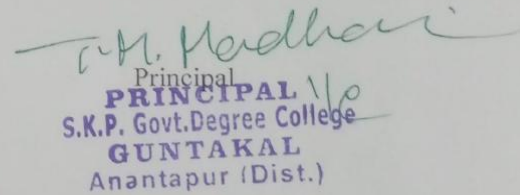 T.M. Madhavi
Principal
PRINCIPAL I/c
S.K.P. Govt.Degree College
GUNTAKAL
Anantapur (Dist.)